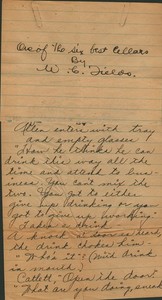 One of the six best cellars
By
W. C. Fields.
(After enters with tray
and empty glasses
"Laura, he thinks he can
drink this way all the
time and attend to bus-
iness. You can't mix the
two. You got to either
give up drinking or you
got to give up working"
Takes a drink
A knock is heard
the drink chokes him
"Who's it" (With drink
in mouth)
Catlett, "Open the door!
What are you doing